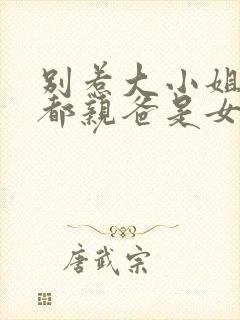 别惹大小姐
都亲爸是女
唐武宗